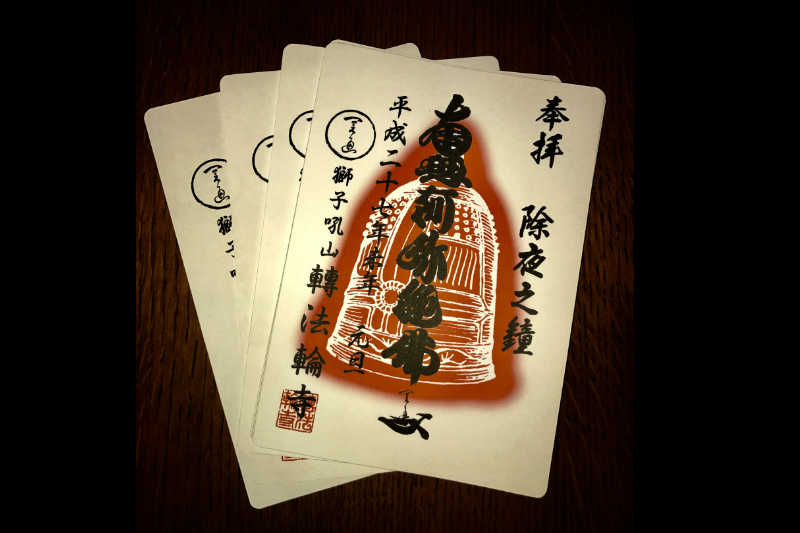 奉拝
除夜之鐘
南無阿弥陀佛
平成二十七年未年 元旦
獅子吼山 轉法輪寺
獅子